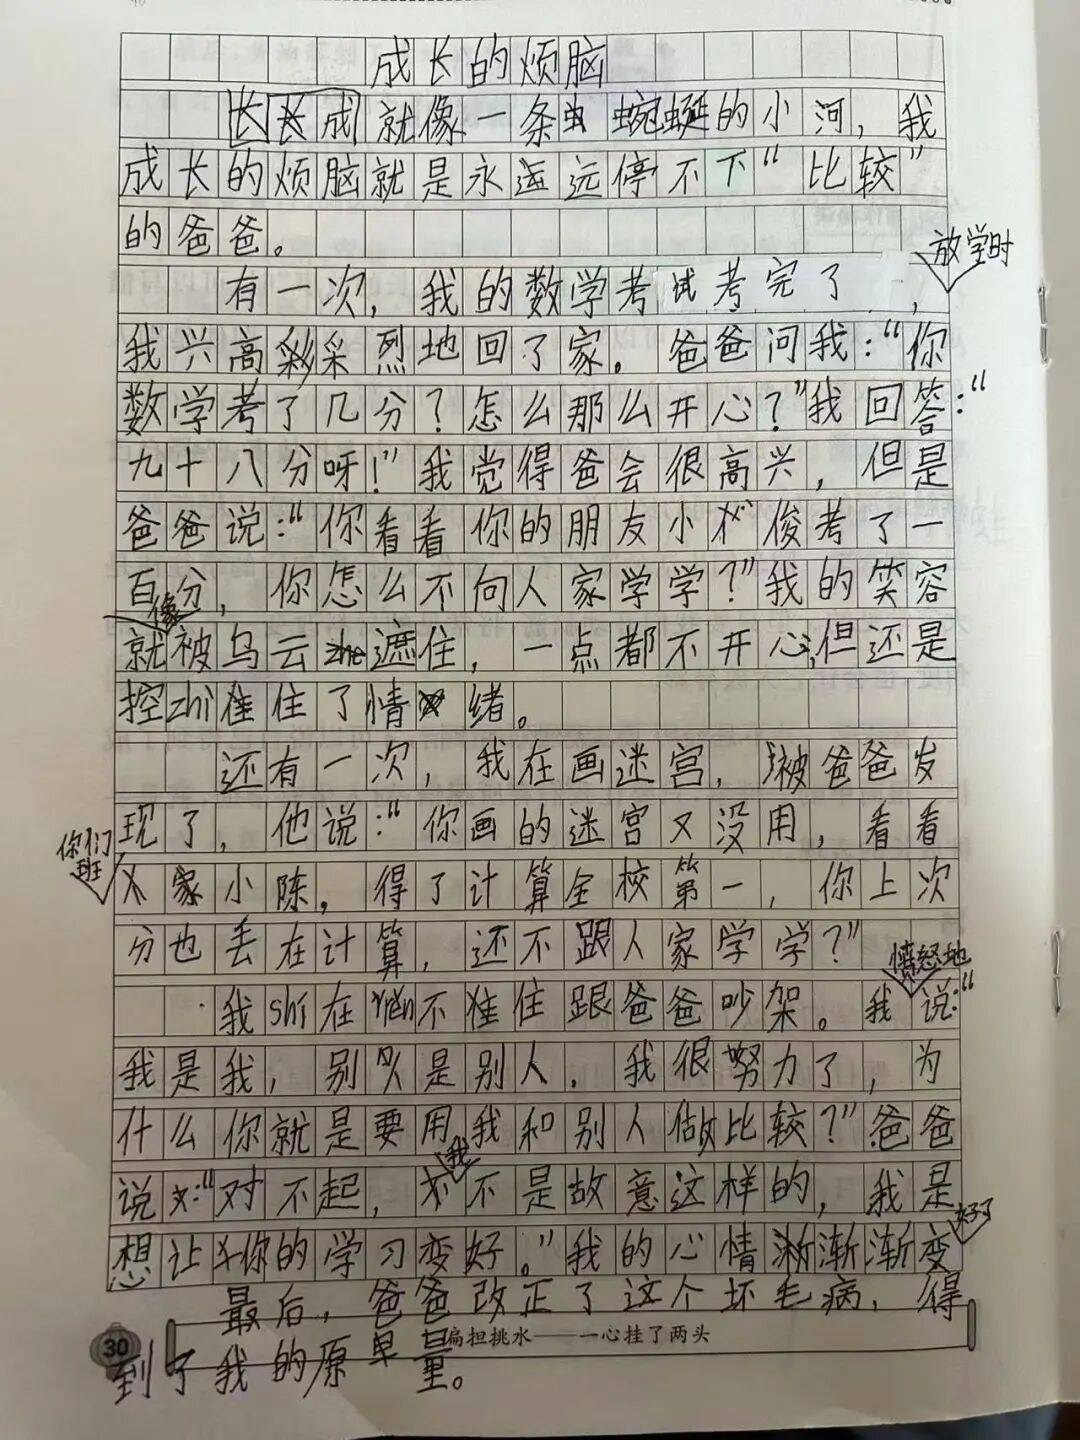 成长的烦脑
长成就像一条蜿蜒的小河，我
成长的烦脑就是永远停不下“比较”
的爸爸。
放学时
有一次，我的数学考试考完了，
我兴高彩采烈地回了家。爸爸问我：“你
数学考了几分？怎么那么开心？”我回答：“
九十八分呀！”我觉得爸会很高兴，但是
爸爸说：“你看看你的朋友小俊考了一
百分，你怎么不向人家学学？”我的笑容
像
就被乌云zhe遮住，一点都不开心，但还是
控zhi住了情绪。
还有一次，我在画迷宫，被爸爸发
现了，他说：“你画的迷宫又没用，看看
你们班
家小陈，得了计算全校第一，你上次
分也丢在计算，还不跟人家学学？”
愤怒地
我shi在ren不住跟爸爸吵架。我说：“
我是我，别人是别人，我很努力了，为
什么你就是要用我和别人做比较？”爸爸
我
说：“对不起，不是故意这样的，我是
好了
想让你的学习变好。”我的心情渐渐变
最后，爸爸改正了这个坏毛病，得
30
扁担挑水——一心挂了两头
到了我的原单量。